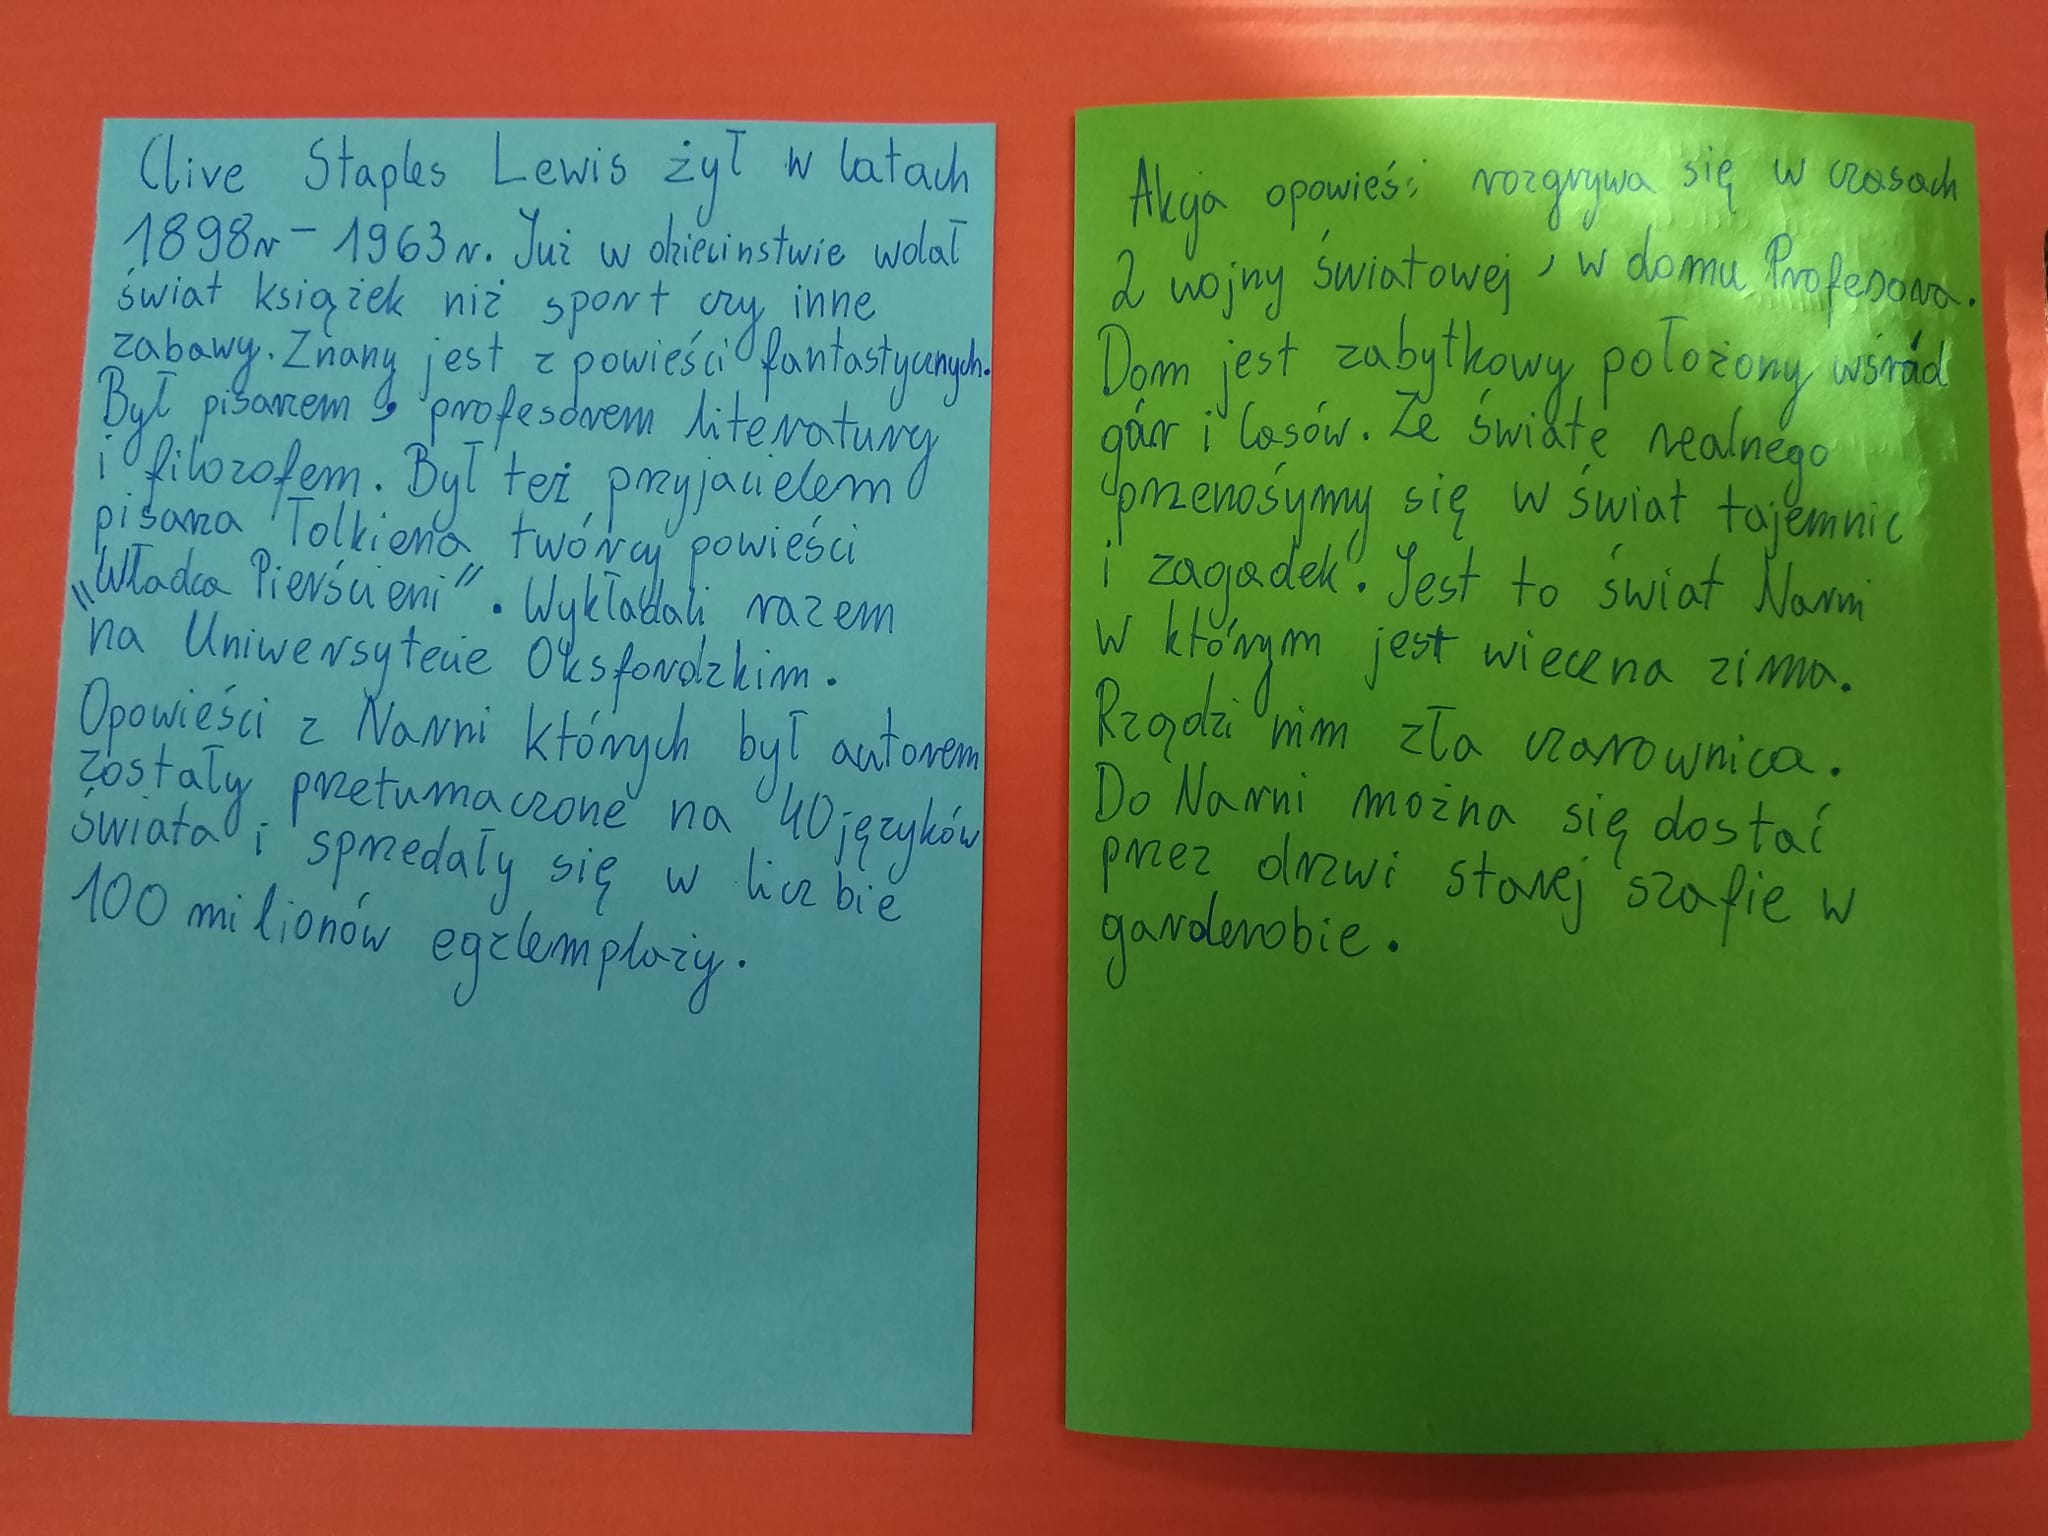 Clive Staples Lewis żył w latach
1898r - 1963r. Już w dzieciństwie wolał
świat książek niż sport czy inne
zabawy. Znany jest z powieści fantastycznych.
Był pisarzem, profesorem literatury
i filozofem. Był też przyjacielem
pisarza Tolkiena twórcy powieści
"Władca Pierścieni". Wykładali razem
na Uniwersytecie Oksfordzkim.
Opowieści z Narni których był autorem
zostały przetumaczone na 40 języków
świata i sprzedały się w liczbie
100 milionów egzlemplarzy.
Akcja opowieści rozgrywa się w czasach
2 wojny światowej, w domu Profesora.
Dom jest zabytkowy położony wśród
gór i lasów. Ze świate realnego
przenośymy się w świat tajemnic
i zagadek. Jest to świat Narni
w którym jest wieczna zima.
Rządzi nim zła czarownica.
Do Narni można się dostać
przez drzwi starej szafie w
garderobie.